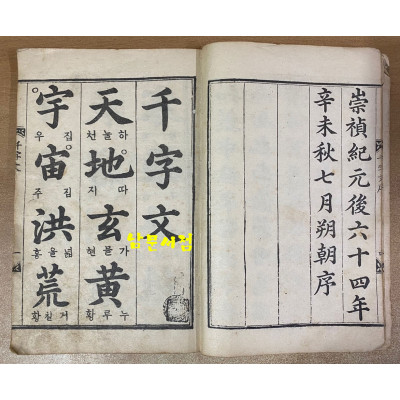 崇禎紀元後六十四年
辛未秋七月朔朝序
千字文
天 하늘천
地 따지
玄 가믈현
黃 누루황
宇 집우
宙 집주
洪 넙을홍
荒 거칠황
千字文
남문서점